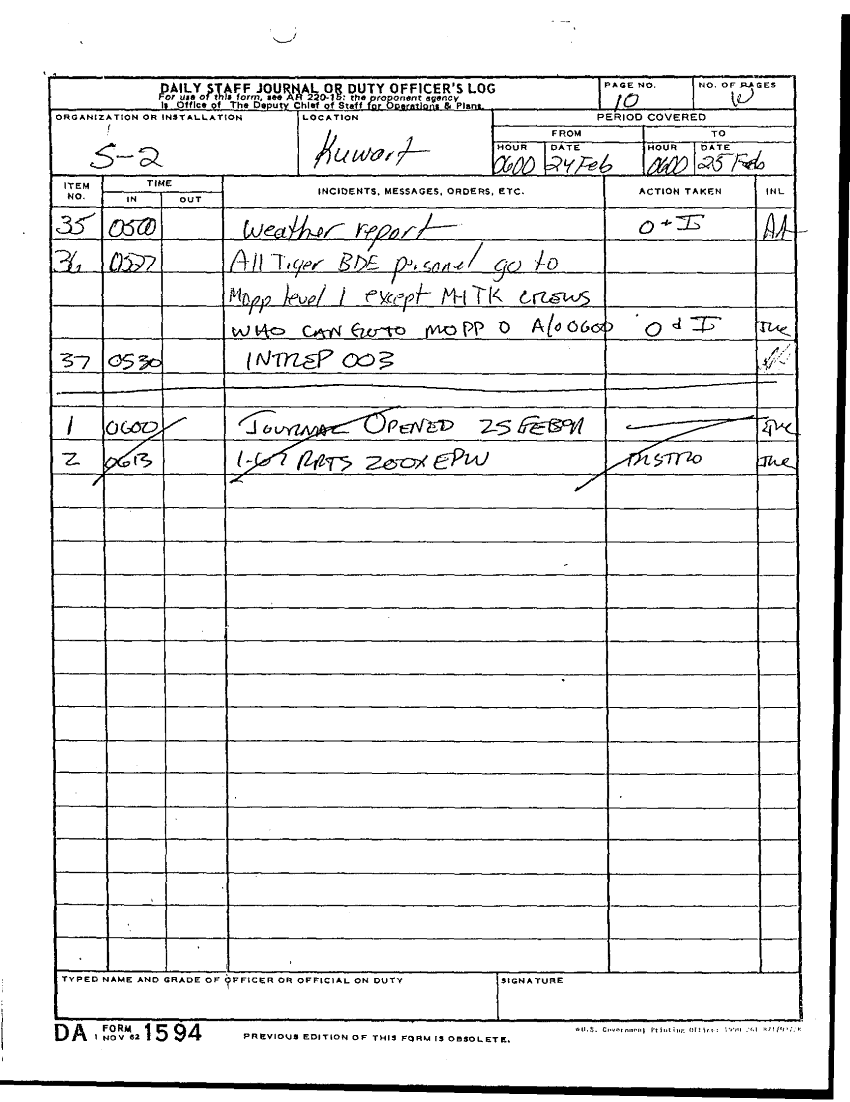 DAILY STAFF JOURNAL OR DUTY OFFICER'S LOG
For use of this form, see AR 220-15: the proponent agency
is Office of The Deputy Chief of Staff for Operations & Plans.
PAGE NO.
10
NO. OF PAGES
10
ORGANIZATION OR INSTALLATION
S-2
LOCATION
Kuwait
PERIOD COVERED
FROM TO
HOUR DATE HOUR DATE
0600 24 Feb 0600 25 Feb
ITEM NO. TIME IN OUT INCIDENTS, MESSAGES, ORDERS, ETC. ACTION TAKEN INL
35 0500 Weather report O + I AA
36 0527 All Tiger BDE prisonel go to
Mopp level 1 except M1TK crews
WHO CAN GO TO MOPP 0 A/O 0600 O & I
37 0530 INTREP 003
1 0600 JOURNAL OPENED 25 FEB 91
2 0613 1-67 RPTS 200X EPW
TYPED NAME AND GRADE OF OFFICER OR OFFICIAL ON DUTY SIGNATURE
DA FORM 1 NOV 62 1594 PREVIOUS EDITION OF THIS FORM IS OBSOLETE.
*U.S. Government Printing Office: